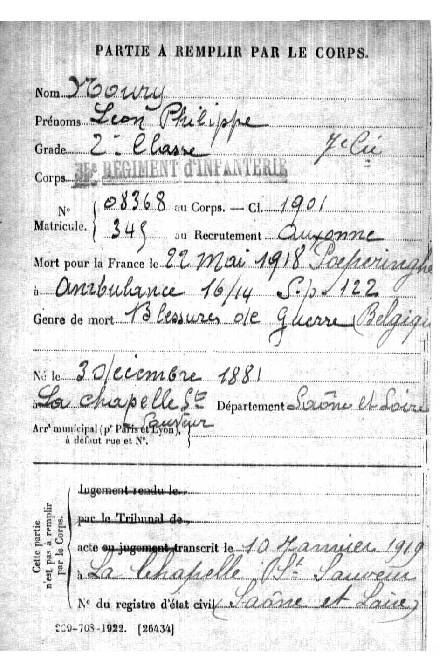 PARTIE À REMPLIR PAR LE CORPS.
Nom Moury
Prénoms Léon Philippe
Grade 2e Classe 7e Cie
Corps 35e REGIMENT d'INFANTERIE
N° 08368 au Corps. — Cl. 1901
Matricule. 345 au Recrutement Auxonne
Mort pour la France le 22 Mai 1918 Poperinghe
à Ambulance 16/14 S.p. 122
Genre de mort Blessures de Guerre (Belgique
Né le 3 Décembre 1881
La Chapelle St Département Saône et Loire
Sauveur
Arrt municipal (pr Paris et Lyon),
à défaut rue et N°.
Cette partie
n'est pas à remplir
par le Corps.
Jugement rendu le
par le Tribunal de
acte ou jugement transcrit le 10 Janvier 1919
à La Chapelle (St Sauveur
N° du registre d'état civil (Saône et Loire)
[26434]